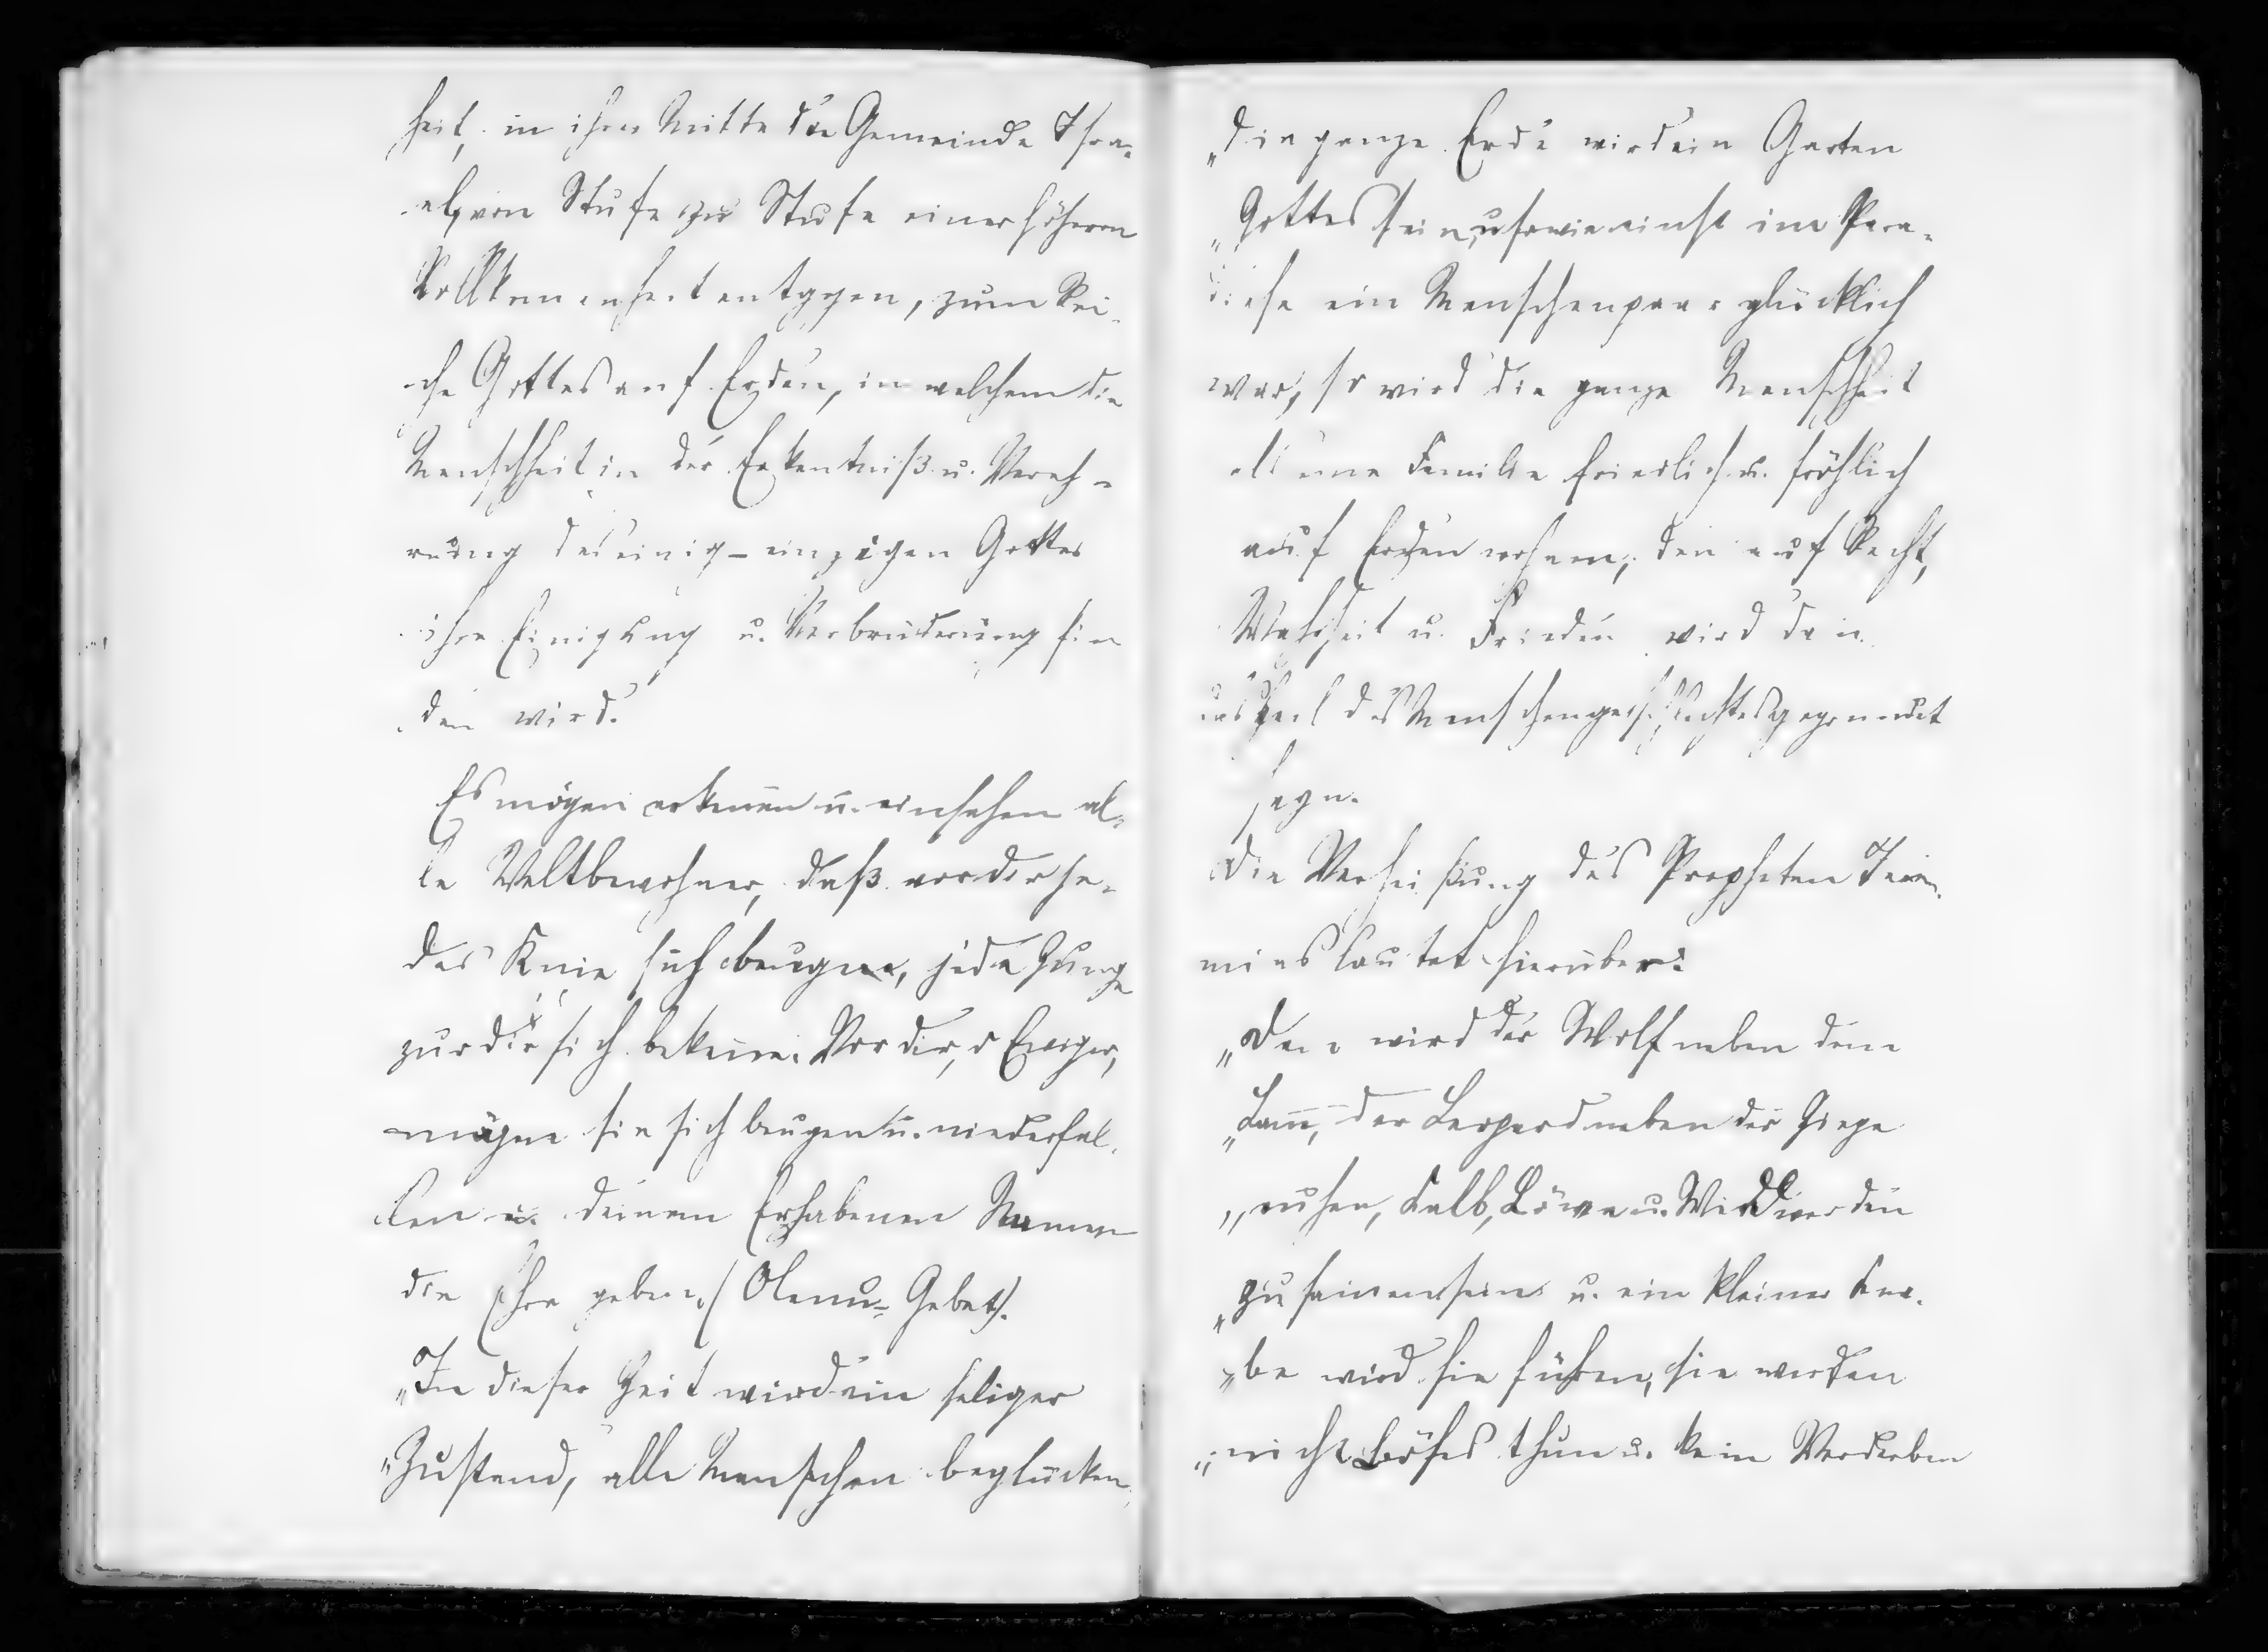 heit, in ihrer Mitte die Gemeinde Isra-
el, von Stufe zu Stufe einer höhern
Vollkmenheit entgegen, zum Rei-
che Gottes auf Erden, in welchem die
Menschheit in der Erkentniß u. Vereh-
rung des einig-einzigen Gottes
ihre Einigung u. Verbrüderung fin
den wird.
Es mögen erkenen u. einsehen al-
le Weltbewohner, daß vor dir je-
des Knie sich beugen, jede Zunge
zur dir sich bekene. Vor dir, o Ewiger,
mögen sie sich beugen u. niederfal-
len u. deinem Erhabenen Namen
die Ehre geben. (Olenu-Gebet).
„In dieser Zeit wird ein seliger
„Zustand, alle Menschen beglücken,
„die ganze Erde wird ein Garten
„Gottes sein, u. so wie einst im Para-
diese ein Menschenpaar glücklich
war, so wird die ganze Menschheit
als eine Familie friedlich u. fröhlich
auf Erden wohnen, den auf Recht,
Wahrheit u. Frieden wird dan
das Heil des Menschengeschlechtes gegründet
seyn.
Die Verheißung des Propheten Jere-
mias lautet hierüber:
„Dan wird der Wolf neben dem
„Lam̅, der Leopard neben der Ziege
„ruhen, Kalb, Löwe u. Widd werden
„zusamensein u. ein kleiner Kna-
„be wird sie führen, sie werden
„nicht böses thun u. kein Verderben